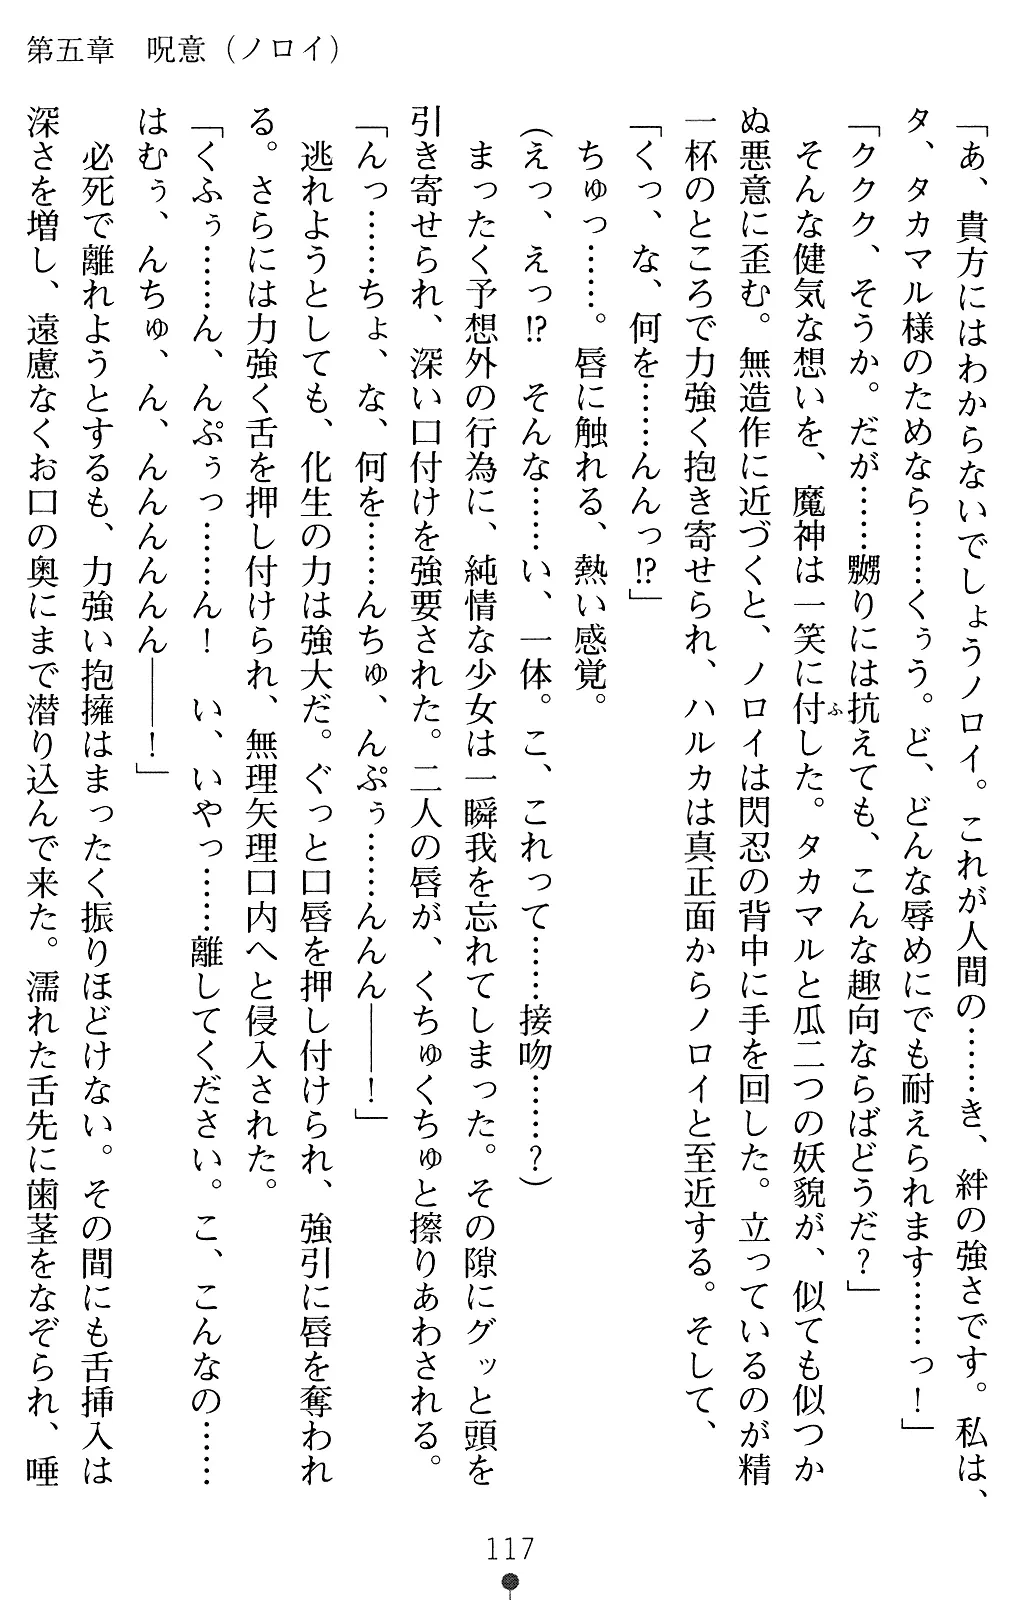 第五章　呪意（ノロイ）
「あ、貴方にはわからないでしょうノロイ。これが人間の……き、絆の強さです。私は、
タ、タカマル様のためなら……くぅう。ど、どんな辱めにでも耐えられます……っ！」
「ククク、そうか。だが……嬲りには抗えても、こんな趣向ならばどうだ？」
　そんな健気な想いを、魔神は一笑に付ふした。タカマルと瓜二つの妖貌が、似ても似つか
ぬ悪意に歪む。無造作に近づくと、ノロイは閃忍の背中に手を回した。立っているのが精
一杯のところで力強く抱き寄せられ、ハルカは真正面からノロイと至近する。そして、
「くっ、な、何を……んんっ!?」
　ちゅっ……。唇に触れる、熱い感覚。
（えっ、えっ!?　そんな……い、一体。こ、これって……接吻……？）
　まったく予想外の行為に、純情な少女は一瞬我を忘れてしまった。その隙にグッと頭を
引き寄せられ、深い口付けを強要された。二人の唇が、くちゅくちゅと擦りあわされる。
「んっ……ちょ、な、何を……んちゅ、んぷぅ……んんん――！」
　逃れようとしても、化生の力は強大だ。ぐっと口唇を押し付けられ、強引に唇を奪われ
る。さらには力強く舌を押し付けられ、無理矢理口内へと侵入された。
「くふぅ……ん、んぷぅっ……ん！　い、いやっ……離してください。こ、こんなの……
はむぅ、んちゅ、ん、んんんんん――！」
　必死で離れようとするも、力強い抱擁はまったく振りほどけない。その間にも舌挿入は
深さを増し、遠慮なくお口の奥にまで潜り込んで来た。濡れた舌先に歯茎をなぞられ、唾
117